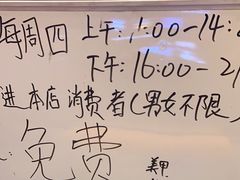 每周四 上午:1:00-14:
下午:16:00-2
进本店消费者(男女不限)
免费
美甲